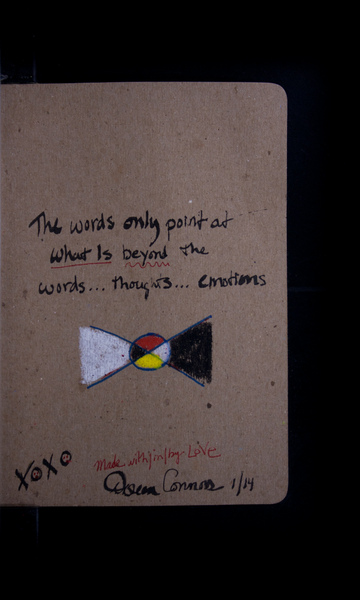 The words only point at
What Is beyond the
words... thoughts... emotions
XOXO
Made with/in/by Love
Connor 1/14